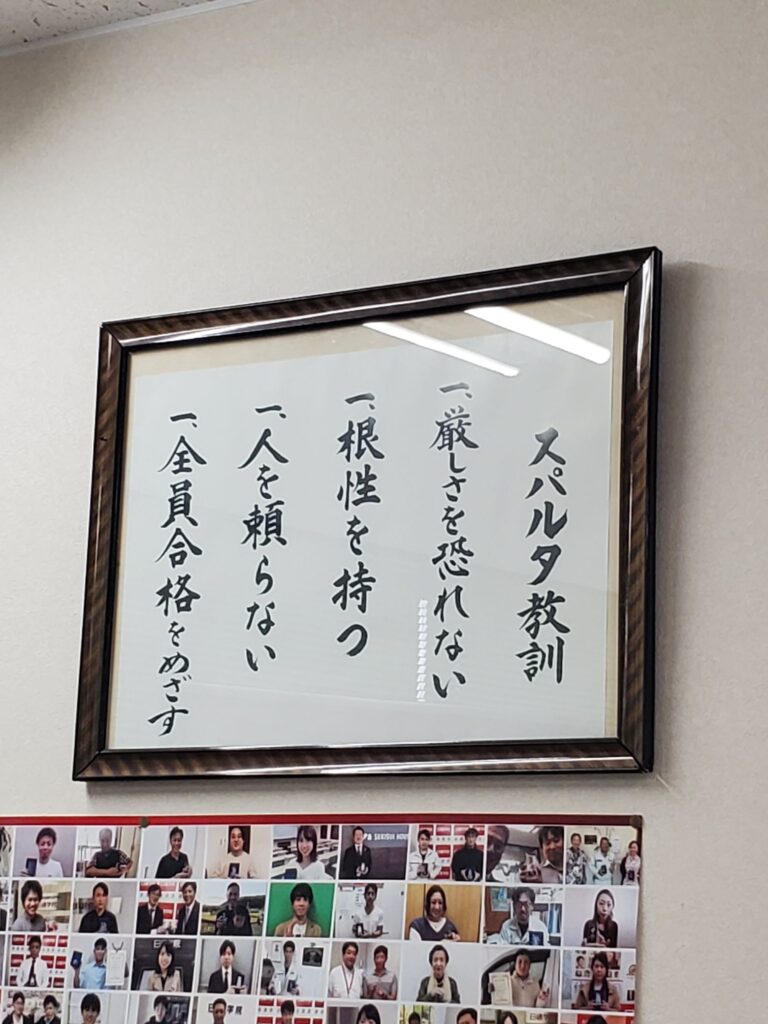 スパルタ教訓
一、厳しさを恐れない
一、根性を持つ
一、人を頼らない
一、全員合格をめざす
SEKISUI HOUSE